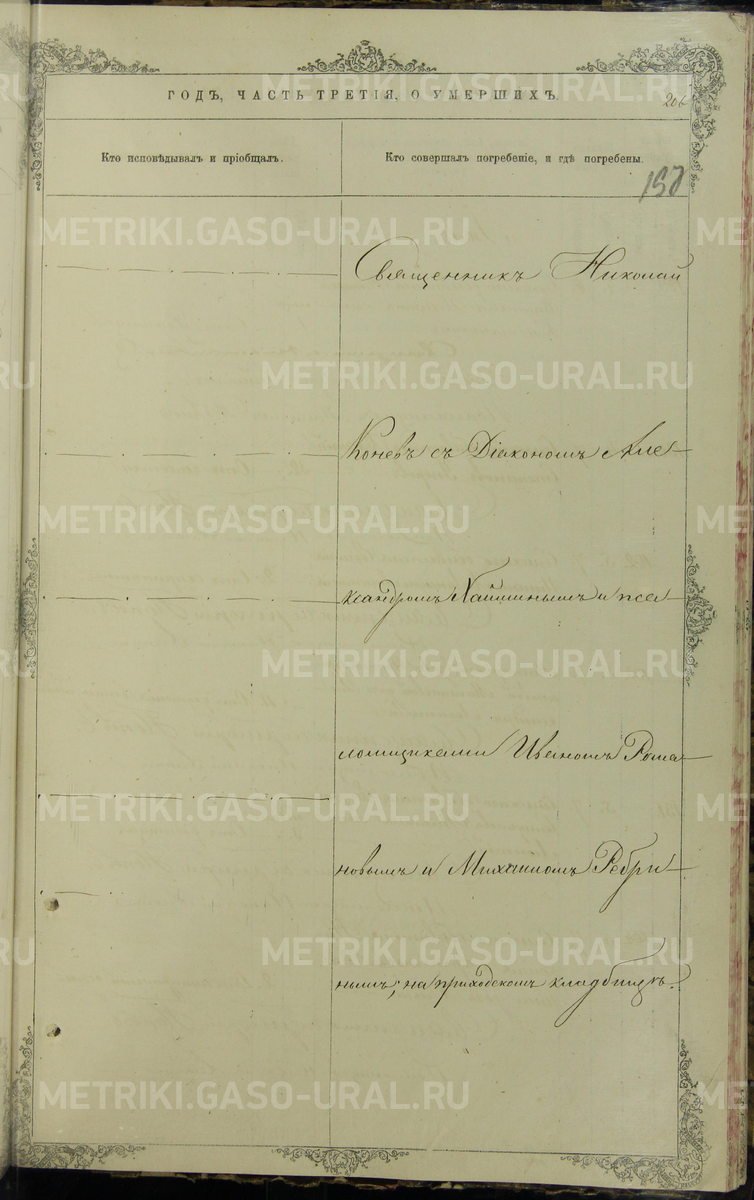 ГОДЪ, ЧАСТЬ ТРЕТІЯ, О УМЕРШИХЪ.
206
Кто исповѣдывалъ и пріобщалъ.
Кто совершалъ погребеніе, и гдѣ погребены.
Священникъ Николай
Коневъ съ Діакономъ Але-
ксандромъ Хайминымъ и пса-
ломщиками Иваномъ Рома-
новымъ и Михаиломъ Ребри-
нымъ; на приходскомъ кладбищѣ.
METRIKI.GASO-URAL.RU